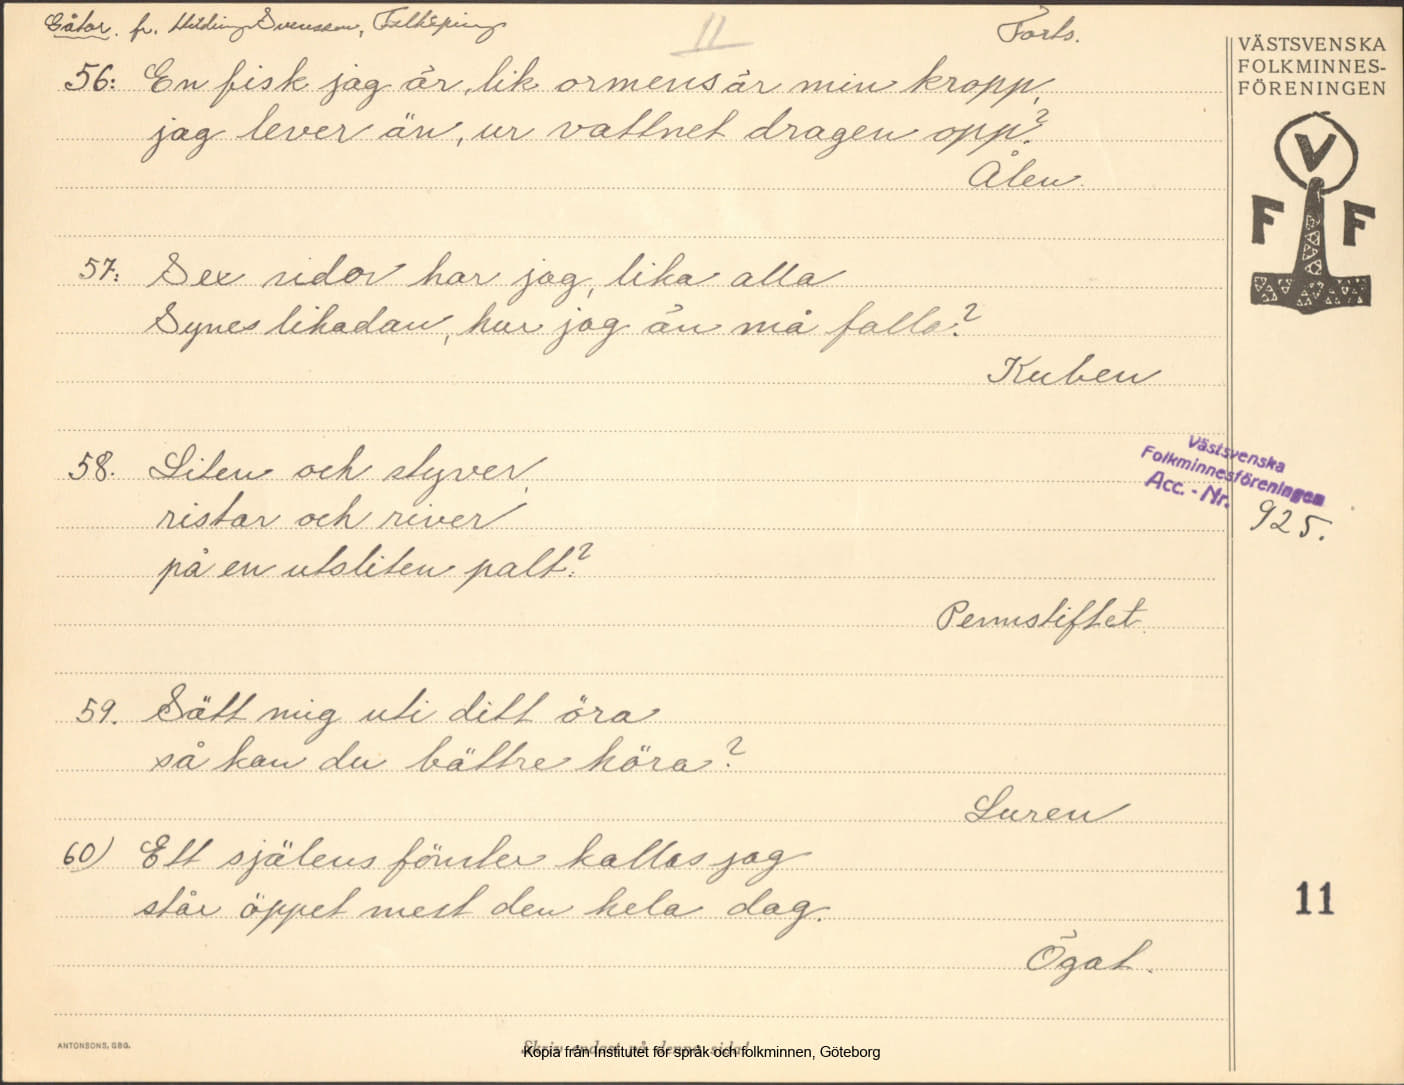 Gåtor. fr. Hilding Svensson, Falköping
11
Forts.
56: En fisk jag är, lik ormens är min kropp,
jag lever än, ur vattnet dragen opp?
Ålen.
57: Sex sidor har jag, lika alla
Synes likadan, hur jag än må falla?
Kuben
58. Liten och styver,
ristar och river
på en utsliten palt?
Pennstiftet.
59. Sätt mig uti ditt öra
så kan du bättre höra?
Luren
60) Ett själens fönster kallas jag
står öppet mest den hela dag.
Ögat.
VÄSTSVENSKA
FOLKMINNES-
FÖRENINGEN
V
F F
Västsvenska
Folkminnesföreningen
Acc. - Nr. 925.
11
ANTONSONS, GBG.
Skriv endast på denna sida!
Kopia från Institutet för språk och folkminnen, Göteborg